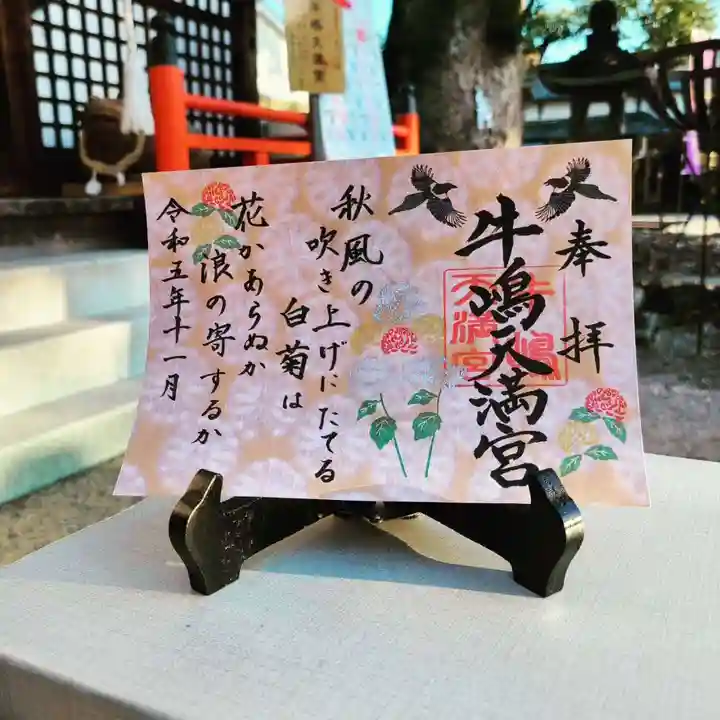 奉拝
牛嶋天満宮
牛嶋天満宮
秋風の
吹き上げにたてる
白菊は
花かあらぬか
浪の寄するか
令和五年十一月